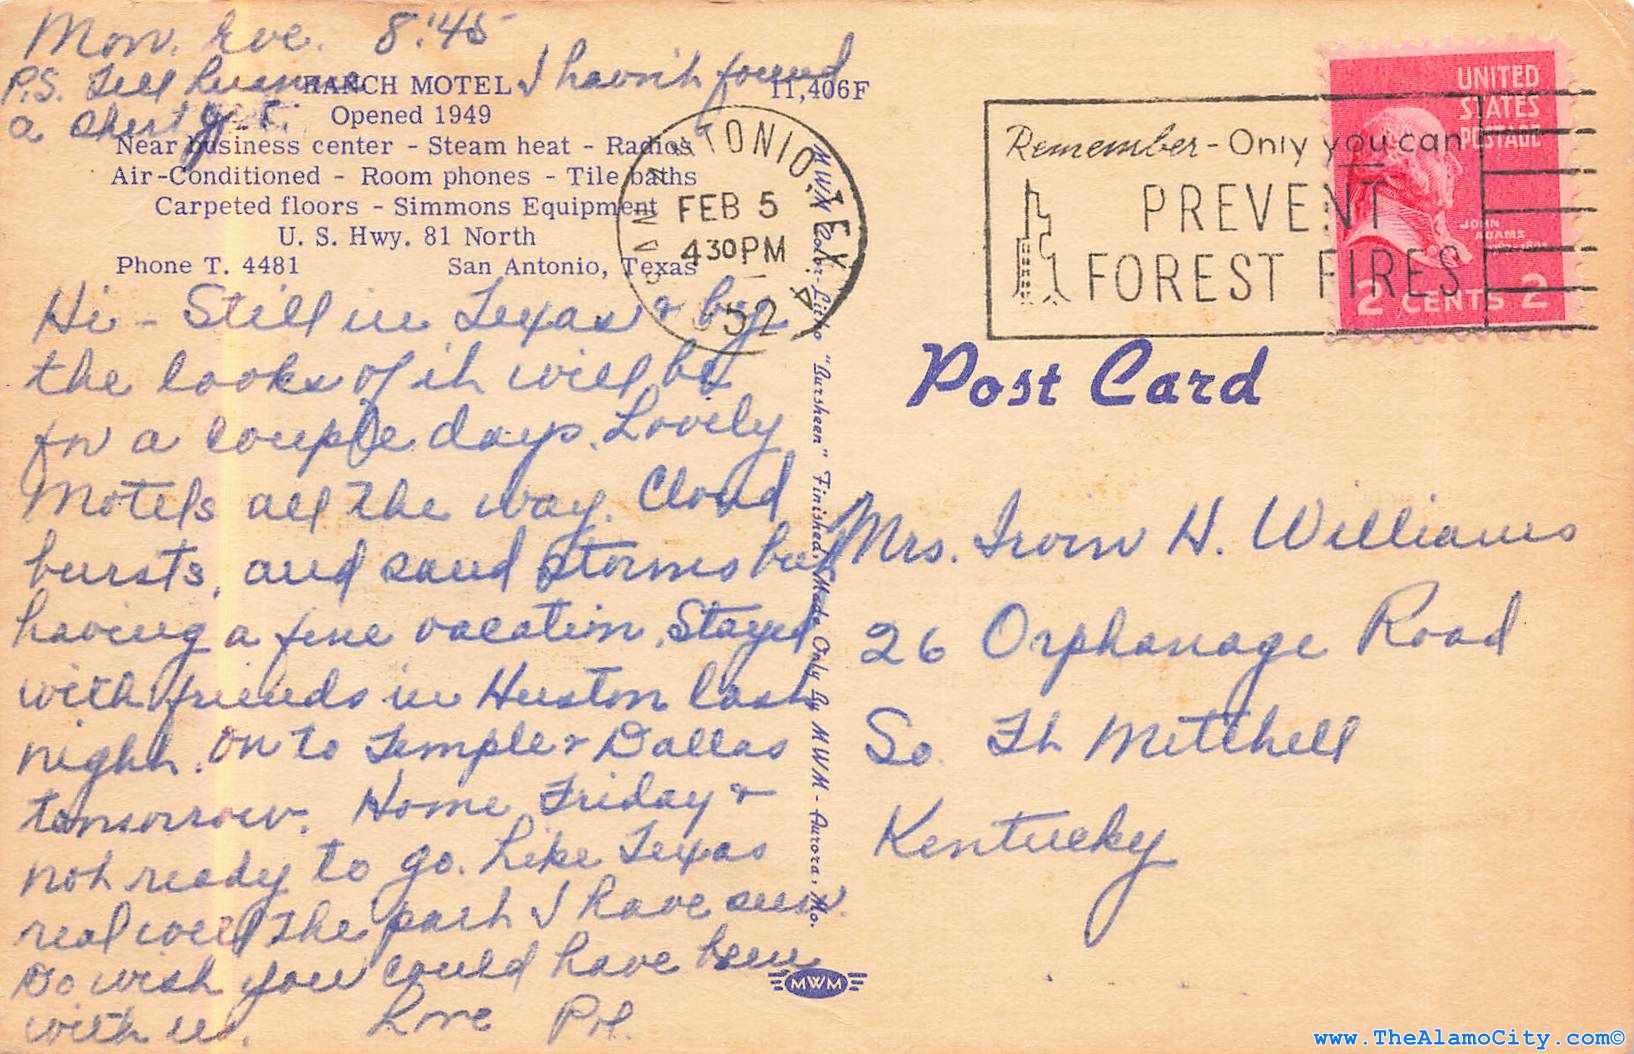 Mon. Eve. 8:45
P.S. Tell I havn't found
a short yet.
RANCH MOTEL 11,406F
Opened 1949
Near business center - Steam heat - Radios
Air-Conditioned - Room phones - Tile baths
Carpeted floors - Simmons Equipment
U. S. Hwy. 81 North
Phone T. 4481 San Antonio, Texas
Hi - Still in Texas & by
the looks of it will be
for a couple days. Lovely
Motels all the way. Cloud
bursts, and sand storms but
having a fine vacation. Stayed
with friends in Huston last
night. On to Temple & Dallas
tomorrow. Home Friday &
not ready to go. Like Texas
real well the part I have seen.
Do wish you could have been
with us. Love
SAN ANTONIO, TEX.
FEB 5
430PM
1952
4
Remember - Only you can
PREVENT
FOREST FIRES
UNITED
STATES
POSTAGE
JOHN
ADAMS
2 CENTS 2
MWM Color-Litho "Aursheen" Finished, Made Only By MWM - Aurora, Mo.
Post Card
Mrs. Irvin H. Williams
26 Orphanage Road
So. Ft Mitchell
Kentucky
MWM
www.TheAlamoCity.com©